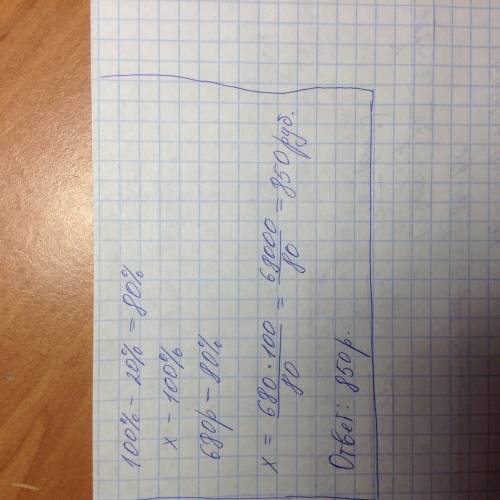 100% - 20% = 80%
x - 100%
680р - 80%
x = 680 · 100 / 80 = 68000 / 80 = 850 руб.
Ответ: 850 р.